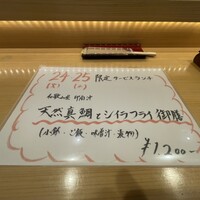 24 25 限定サービスランチ
天然真鯛とシイラフライ御膳
(小鉢・ご飯・味噌汁・香物)
¥1200-